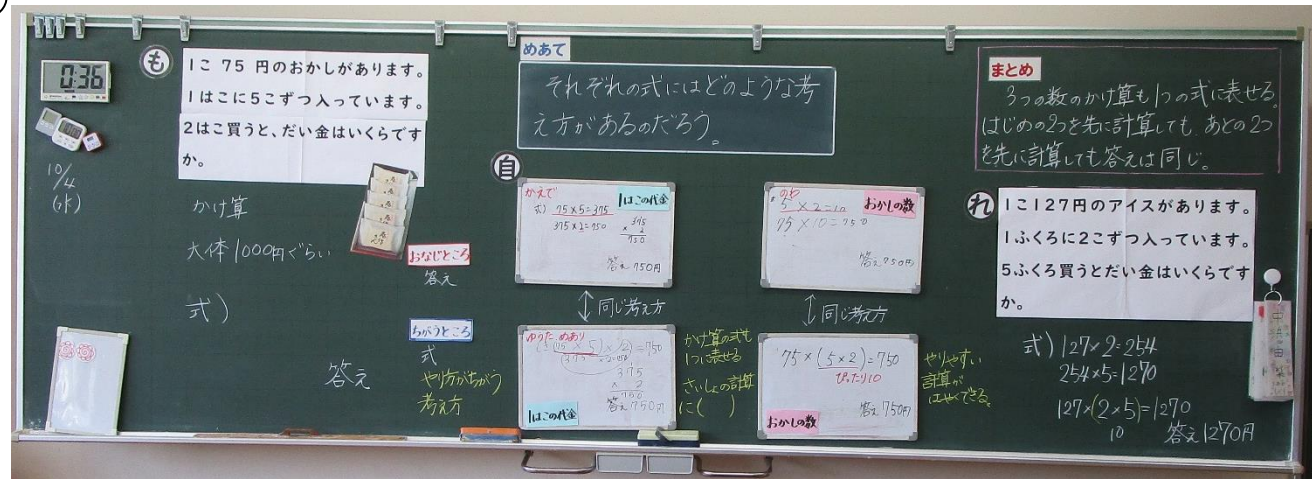 0:36
10/4
(水)
も
1こ 75 円のおかしがあります。
1はこに5こずつ入っています。
2はこ買うと、だい金はいくらです
か。
かけ算
大体1000円ぐらい
式)
答え
おなじところ
答え
ちがうところ
式
やり方がちがう
考え方
めあて
それぞれの式にはどのような考
え方があるのだろう。
自
かえで
1はこの代金
式) 75×5=375
375×2=750
375
× 2
750
答え 750円
↕同じ考え方
ゆうた
(75×5)×2=750
375
× 2
750
答え 750円
1はこの代金
かけ算の式も
1つに表せる
さいしょの計算
に( )
おかしの数
5×2=10
75×10=750
答え 750円
↕同じ考え方
75×(5×2)=750
ぴったり10
答え 750円
おかしの数
やりやすい
計算が
はやくできる。
まとめ
3つの数のかけ算も1つの式に表せる。
はじめの2つを先に計算しても、あとの2つ
を先に計算しても答えは同じ。
れ
1こ127円のアイスがあります。
1ふくろに2こずつ入っています。
5ふくろ買うとだい金はいくらです
か。
式) 127×2=254
254×5=1270
127×(2×5)=1270
10
答え 1270円